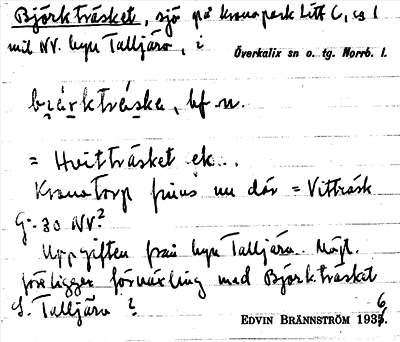 Björkträsket, sjö på kronopark Litt C, ca 1
mil NV. byn Talljärv, i
Överkalix sn o. tg. Norrb. l.
bjärkträske, bf n.
= Hvitträsket ek..
Kronotorp finns nu där = Vitträsk
G:-30 NV?
Uppgiften från byn Talljärv. Möjl.
föreligger förväxling med Björkträsket
S. Talljärv ?
EDVIN BRÄNNSTRÖM 1936